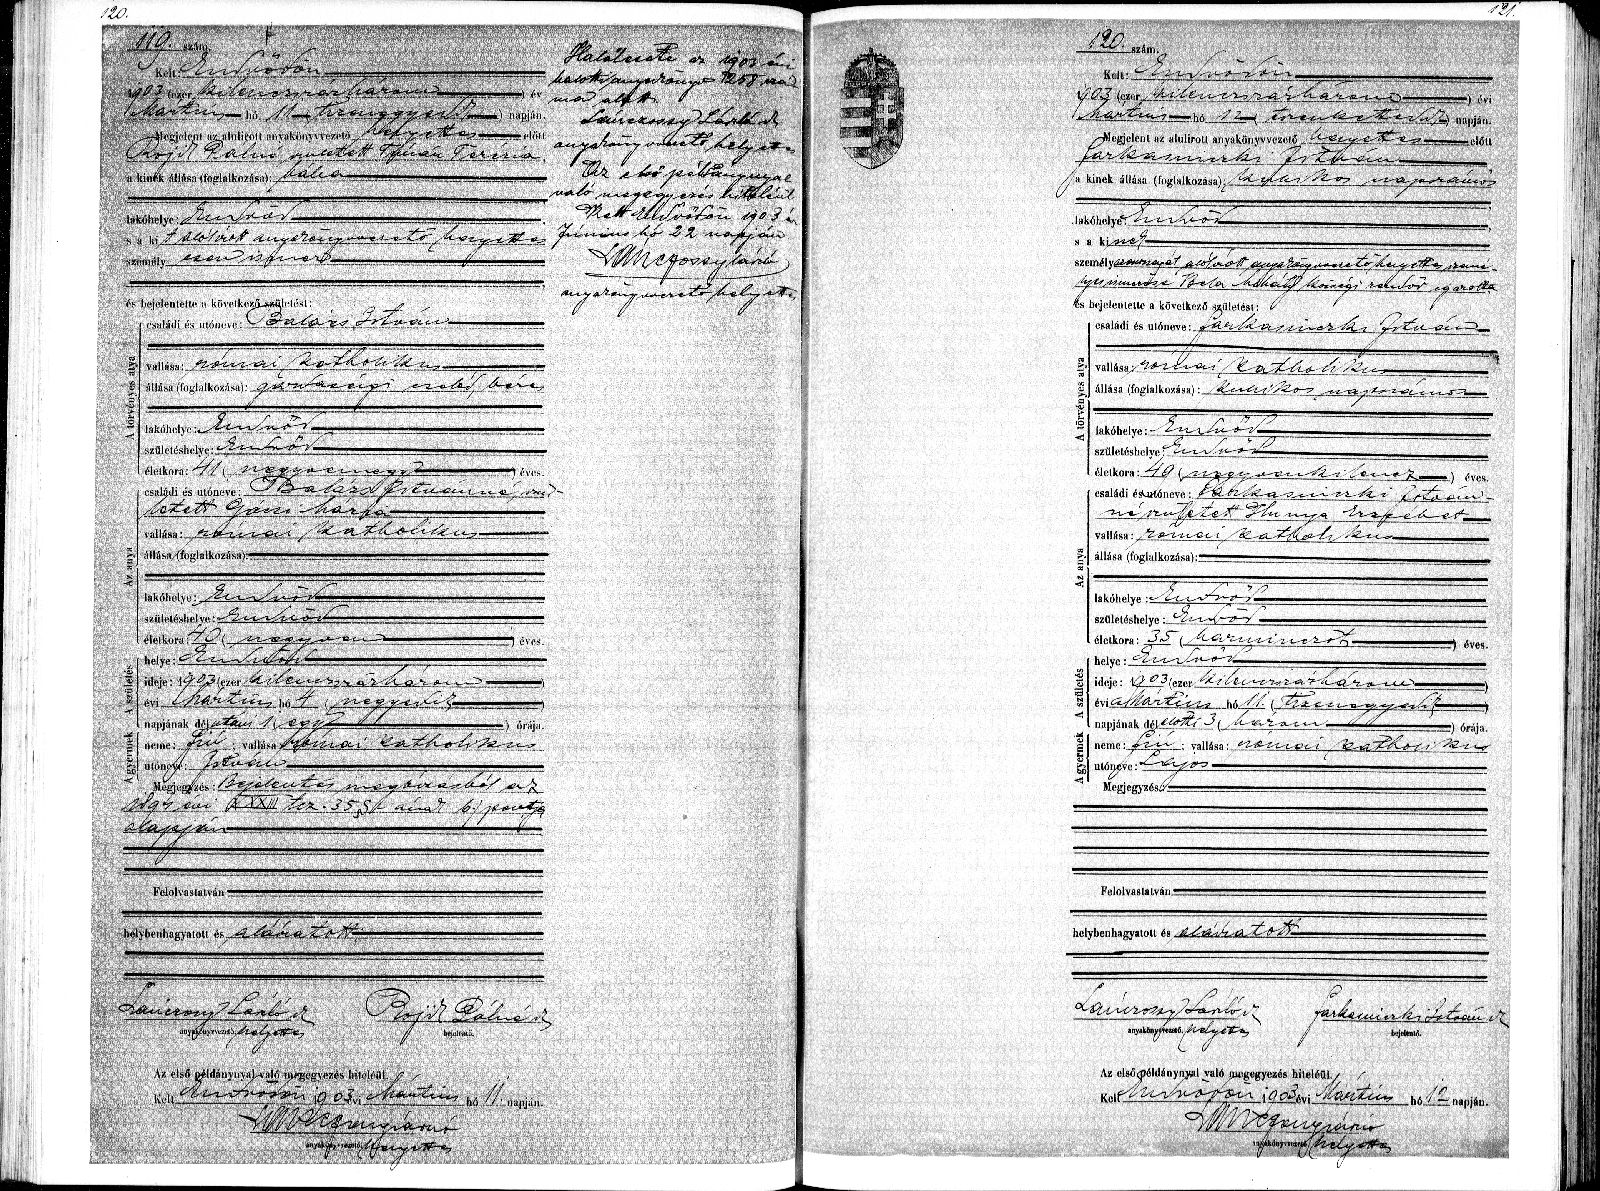 120.
119. szám.
Kelt: Endrődön
1903 (ezer kilenczszázhárom) évi
Március hó 11 (tizenegyedik) napján.
Megjelent az alulirott anyakönyvvezető helyettes előtt
Rojik Pálné, született Teréz
a kinek állása (foglalkozása): bába
lakóhelye: Endrőd
s a ki t alólirott anyakönyvvezető helyettes
személyesen ismer
és bejelentette a következő születést:
A törvényes atya
családi és utóneve: Balázs István
vallása: római katholikus
állása (foglalkozása): gazdasági cseléd, béres
lakóhelye: Endrőd
születéshelye: Endrőd
életkora: 41 (negyvenegy) éves.
Az anya
családi és utóneve: Balázs Istvánné, szü-
letett Mária
vallása: római katholikus
állása (foglalkozása):
lakóhelye: Endrőd
születéshelye: Endrőd
életkora: 40 (negyven) éves.
A születés
helye: Endrőd
ideje: 1903 (ezer kilenczszázhárom)
évi Március hó 4 (negyedik)
napjának délutáni 1 (egy) órája.
A gyermek
neme: fiú; vallása: római katholikus
utóneve: István
Megjegyzés: Bejelentés megbízásból az
1894 évi XXXIII tcz. 35 § b.) pontja
alapján
Felolvastatván
helybenhagyatott és aláiratott.
Lánczossy László
anyakönyvvezető helyettes
Rojik Pálné
bejelentő.
Az első példánynyal való megegyezés hiteléül.
Kelt Endrődön 1903 évi Március hó 11 napján.
anyakönyvvezető helyettes
Halálesete az 1903 évi
halotti anyakönyv 258
alatt.
Lánczossy László
anyakönyvvezető helyettes
Az első példánynyal
való megegyezés hiteléül
Kelt Endrődön 1903
Június hó 22 napján
Lánczossy László
anyakönyvvezető helyettes
121.
120. szám.
Kelt: Endrődön
1903 (ezer kilenczszázhárom) évi
Március hó 12 (tizenkettedik) napján.
Megjelent az alulirott anyakönyvvezető helyettes előtt
Farkasinszki István
a kinek állása (foglalkozása): kubikos napszámos
lakóhelye: Endrőd
s a kinek
személyazonosságát alólirott anyakönyvvezető helyettes szemé-
lyes ismerőse Béla Mihály községi rendőr igazolta
és bejelentette a következő születést:
A törvényes atya
családi és utóneve: Farkasinszki István
vallása: római katholikus
állása (foglalkozása): kubikos napszámos
lakóhelye: Endrőd
születéshelye: Endrőd
életkora: 49 (negyvenkilencz) éves.
Az anya
családi és utóneve: Farkasinszki István-
né született Hunya Erzsébet
vallása: római katholikus
állása (foglalkozása):
lakóhelye: Endrőd
születéshelye: Endrőd
életkora: 35 (harmincöt) éves.
A születés
helye: Endrőd
ideje: 1903 (ezer kilenczszázhárom)
évi Március hó 11. (tizenegyedik)
napjának délelőtti 3 (három) órája.
A gyermek
neme: fiú; vallása: római katholikus
utóneve: Lajos
Megjegyzés:
Felolvastatván
helybenhagyatott és aláiratott
Lánczossy László
anyakönyvvezető helyettes
Farkasinszki István
bejelentő.
Az első példánynyal való megegyezés hiteléül.
Kelt Endrődön 1903 évi Március hó 12 napján.
anyakönyvvezető helyettes